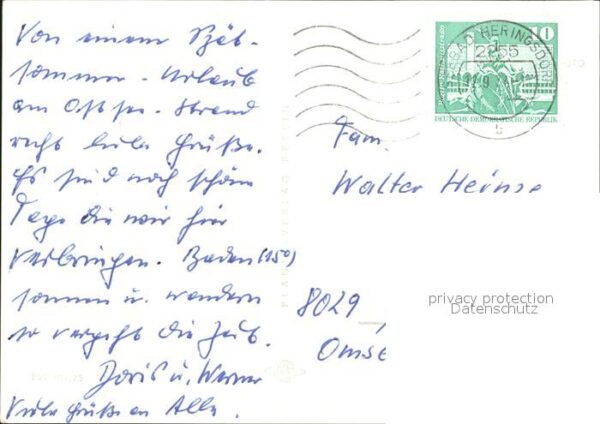 Von einem Spät-
sommer-Urlaub
am Ostsee-Strand
recht liebe Grüße.
Es sind noch schöne
Tage die wir hier
verbringen. Baden (15°)
sonnen u. wandern
so vergeht die Zeit.
Doris u. Werner
Viele Grüße an Alle.
SEEBAD HERINGSDORF
2255
10
DEUTSCHE DEMOKRATISCHE REPUBLIK
Fam.
Walter Heinse
8029
Omse
PLANET-VERLAG BERLIN
privacy protection
Datenschutz